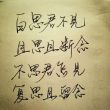 百思君不見
且思且斷念
不思君 見
复思且留念